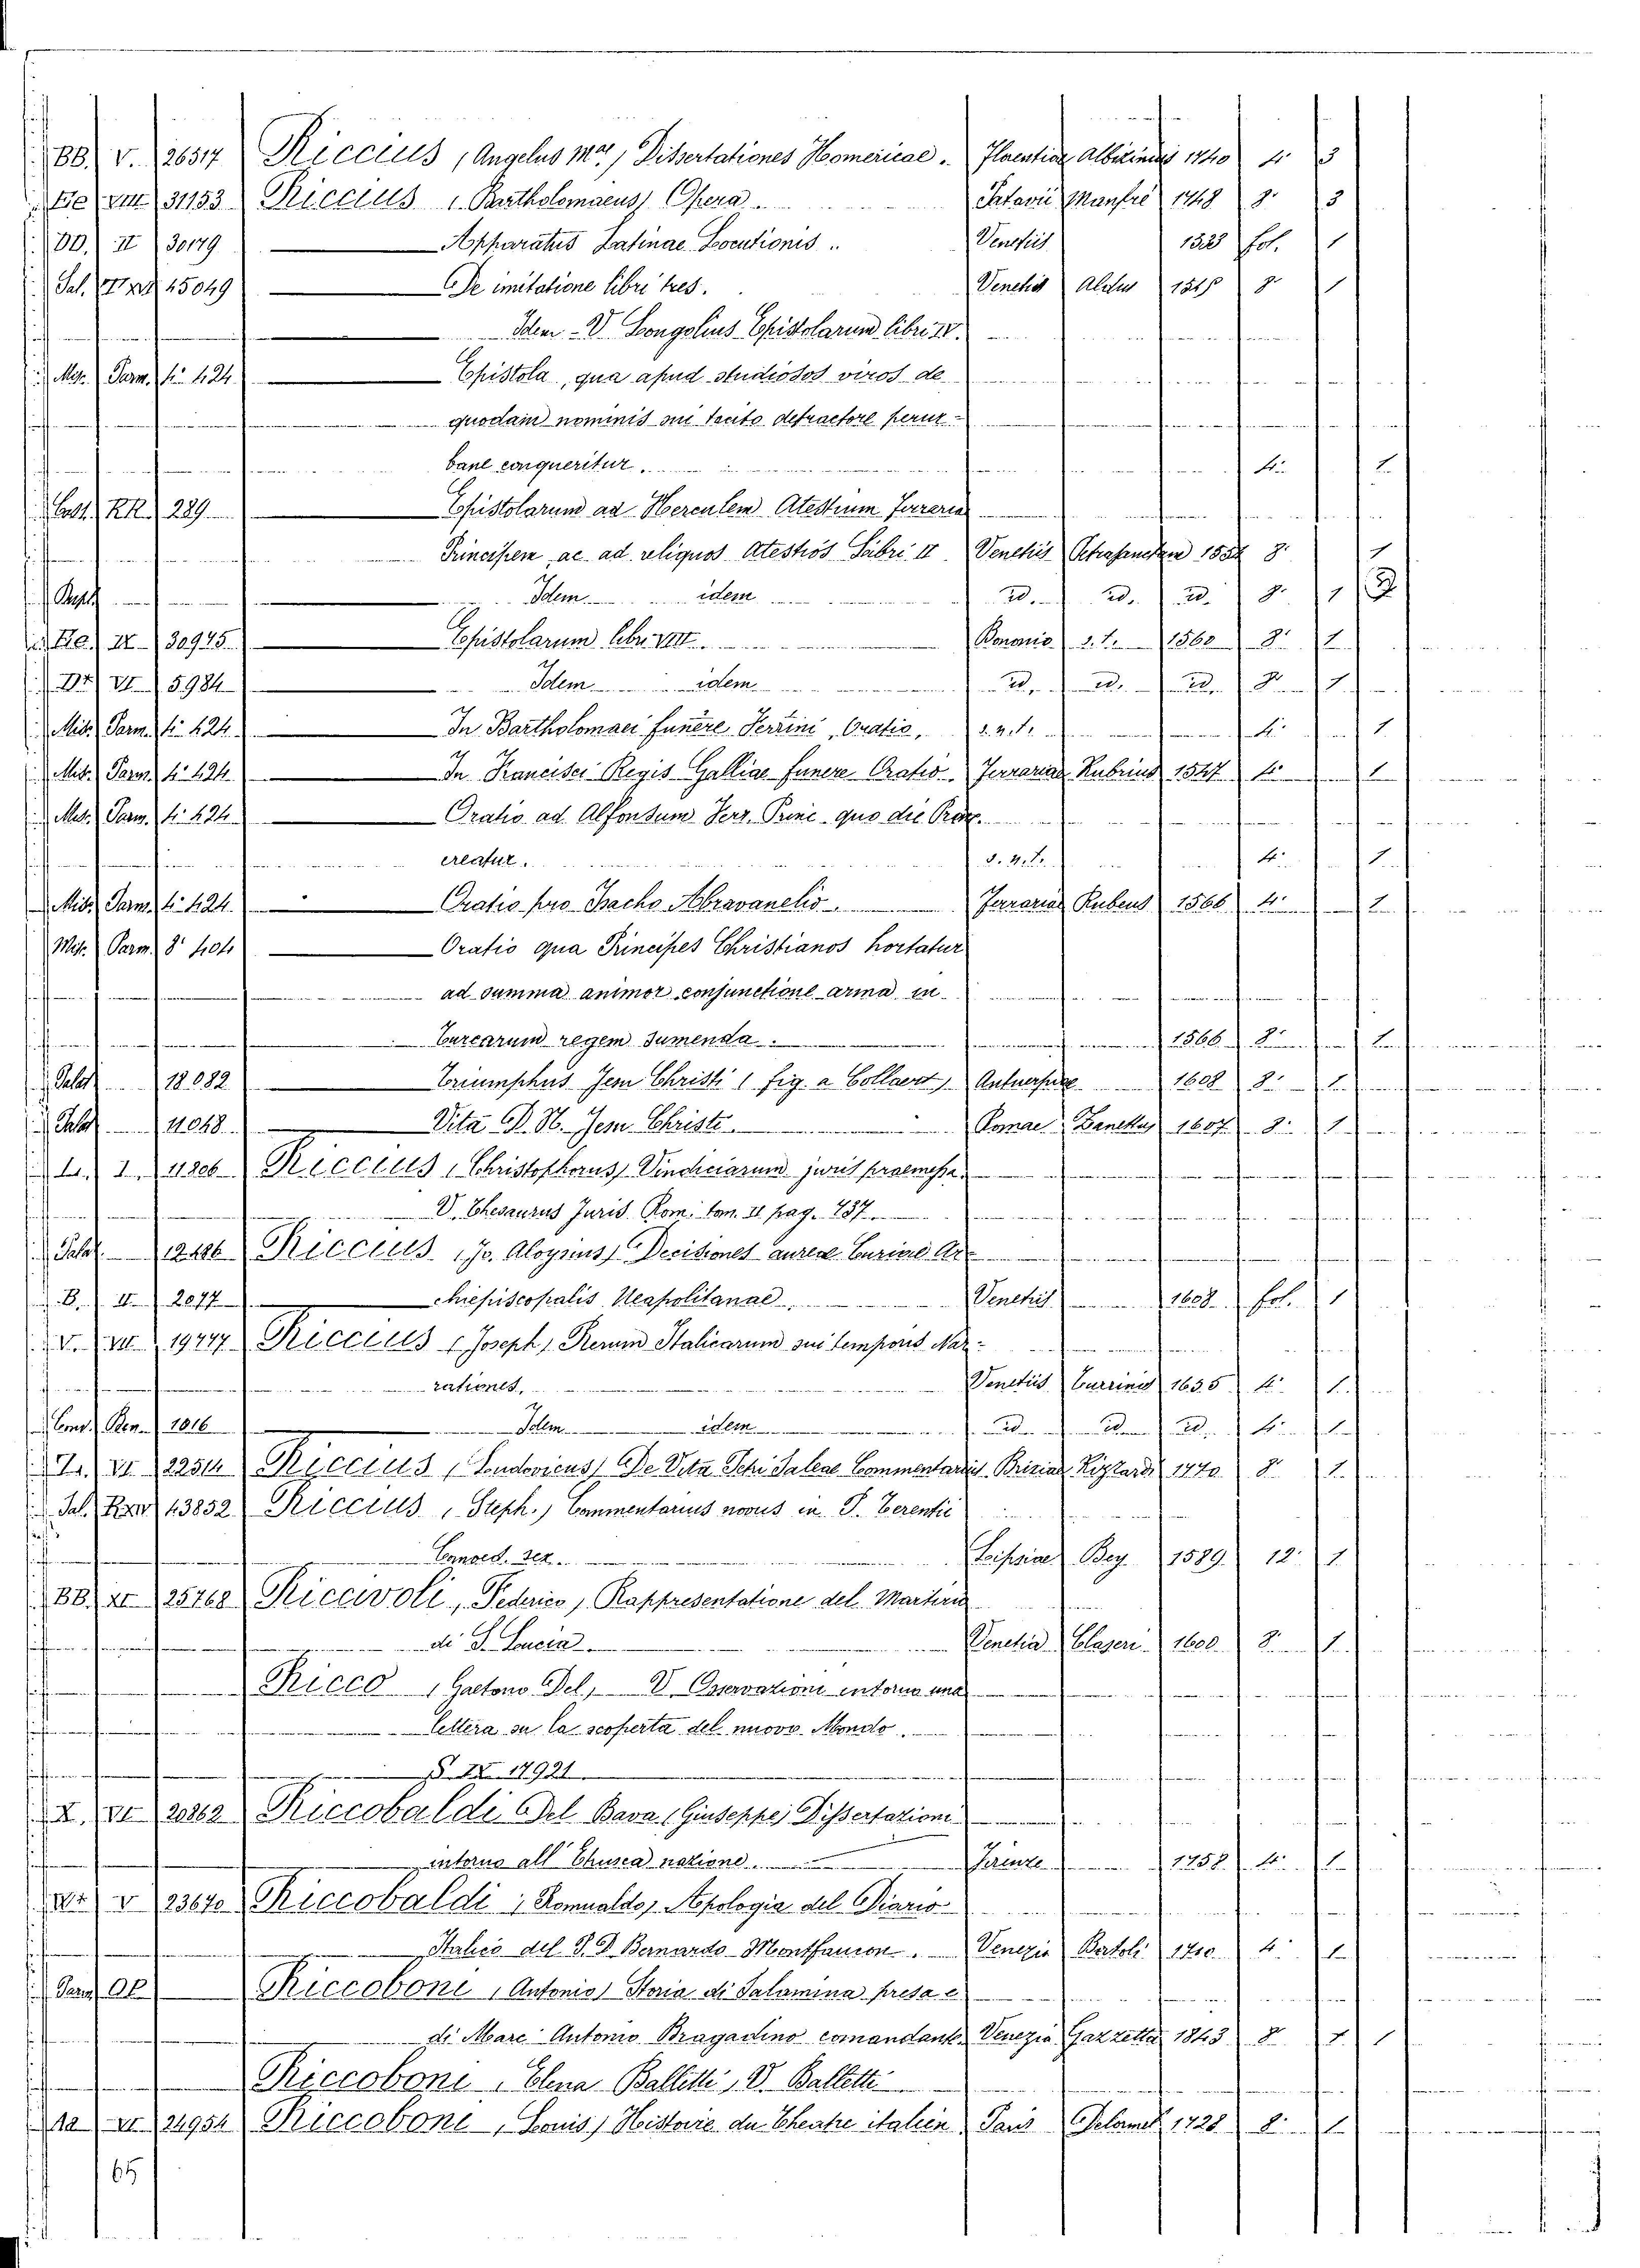 BB. V. 26517 Riccius (Angelus Ma) Dissertationes Homericae. Florentiae Albizinius 1740 4° 3
Ee VIII 31153 Riccius (Bartholomaeus) Opera. Patavii Manfrè 1748 8° 3
DD. II 30179 Apparatus Latinae Locutionis. Venetiis 1528 fol. 1
Sal. 45049 De imitatione libri tres. Venetiis Aldus 1545 8° 1
Idem - V. Longolius Epistolarum libri IV.
Misc. Parm. 4° 424 Epistola, qua apud studiosos viros de
quodam nominis sui tacito detractore pertur-
bane conqueritur. 4° 1
Cass. RR. 289 Epistolarum ad Herculem Atestium Ferrariae
Principem, ac ad reliquos Atestios Libri II Venetiis 1554 8° 1
Idem idem id. id. id. 8° 1
Ee. IX 30975 Epistolarum libri VIII. Bononie s. t. 1560 8° 1
VI 5984 Idem idem id. id. id. 8° 1
Misc. Parm. 4° 424 In Bartholomaei funere Ferrini, Oratio, s. n. t. 4° 1
Misc. Parm. 4° 424 In Francisci Regis Galliae funere Oratio. Ferrariae Rubrius 1547 4° 1
Misc. Parm. 4° 424 Oratio ad Alfonsum Ferr. Princ. quo die Princ.
creatur. s. n. t. 4° 1
Misc. Parm. 4° 424 Oratio pro Isacho Abravanelio. Ferrariae Rubeus 1566 4° 1
Misc. Parm. 8° 404 Oratio qua Principes Christianos hortatur
ad summa animor. conjunctione arma in
Turcarum regem sumenda. 1566 8° 1
Palat 18082 Triumphus Jesu Christi (fig. a Collaert). Antuerpiae 1608 8° 1
Palat 11048 Vita D. N. Jesu Christi. Romae Zanettus 1607 8° 1
L. I. 11806 Riccius (Christophorus) Vindiciarum juris praemessa
V. Thesaurus Juris Rom. tom. II pag. 737
Palat 12486 Riccius (Jo. Aloysius) Decisiones aureae Curiae Ar-
B. II 2077 chiepiscopalis Neapolitanae. Venetiis 1608 fol. 1
V. VII 19777 Riccius (Joseph) Rerum Italicarum sui temporis Nar-
rationes. Venetiis Turrinus 1655 4° 1
Cond. Ben. 1016 Idem idem id id id. 4° 1
VI 22514 Riccius (Ludovicus) De Vita Schi Saleae Commentarius Brixiae Rizzardi 1770 8° 1
Sal. 43852 Riccius (Steph.) Commentarius novus in P. Terentii
Comoed. sex. Leipsiae Bey. 1589 12° 1
BB. XI 25768 Riccivoli, (Federico) Rappresentatione del Martirio
di S. Lucia. Venetia Claseri 1600 8° 1
Ricco (Gaetano Del) V. Osservazioni intorno una
lettera su la scoperta del nuovo Mondo.
S. IX 17921
X. VI 20862 Riccobaldi Del Bava (Giuseppe) Dissertazione
intorno all' Etrusca nazione. Firenze 1758 4° 1
V 23670 Riccobaldi (Romualdo) Apologia del Diario
Italico del P. D. Bernardo Montfaucon. Venezia Bortoli 1710 4° 1
Parm OP Riccoboni (Antonio) Storia di Salamina presa e
di Marc' Antonio Bragadino comandante Venezia Gazzetta 1843 8° 1 1
Riccoboni, Elena Balletti, V. Balletti
Aa VI 24954 Riccoboni (Louis) Histoire du Theatre italien Paris Delormel 1728 8° 1
65